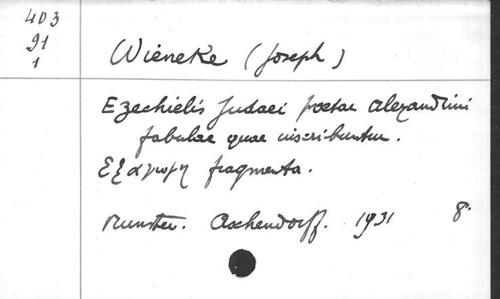 403
91
1
Wieneke (Joseph)
Ezechielis Judaei poetae alexandrini
fabulae quae inscribuntur.
Εξαγωγη fragmenta.
Munster. Aschendorff. 1931 8°